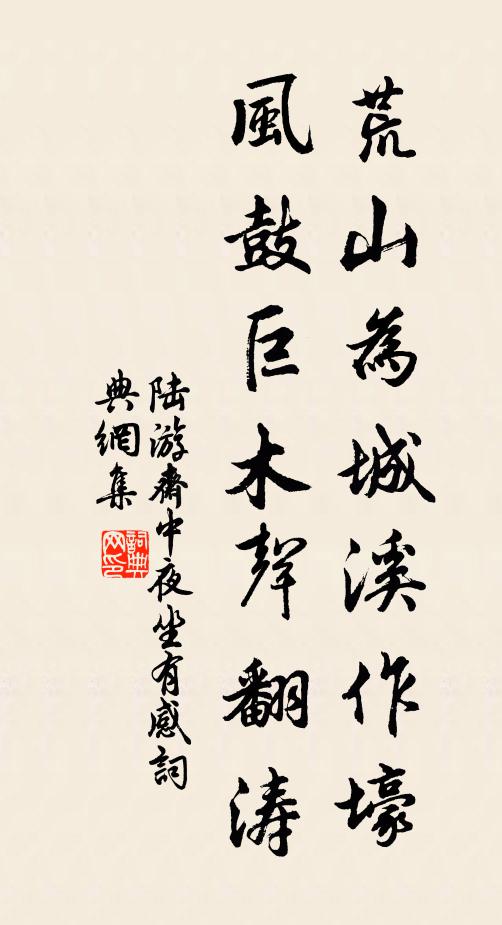 荒山為城溪作壕
風鼓巨木聲翻濤
陆游齋中夜坐有感詞
典網集
詞典網印